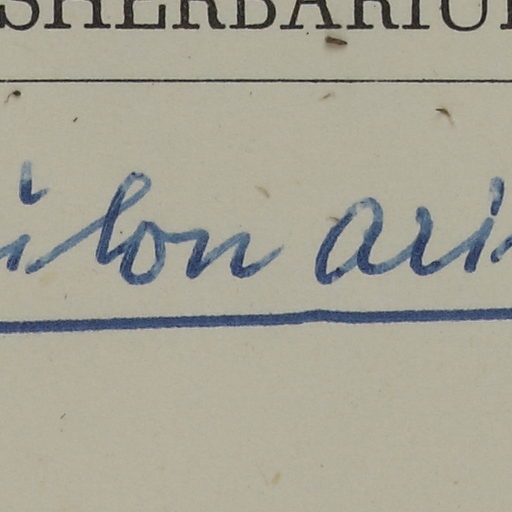 SHERBARIU
ilon ari